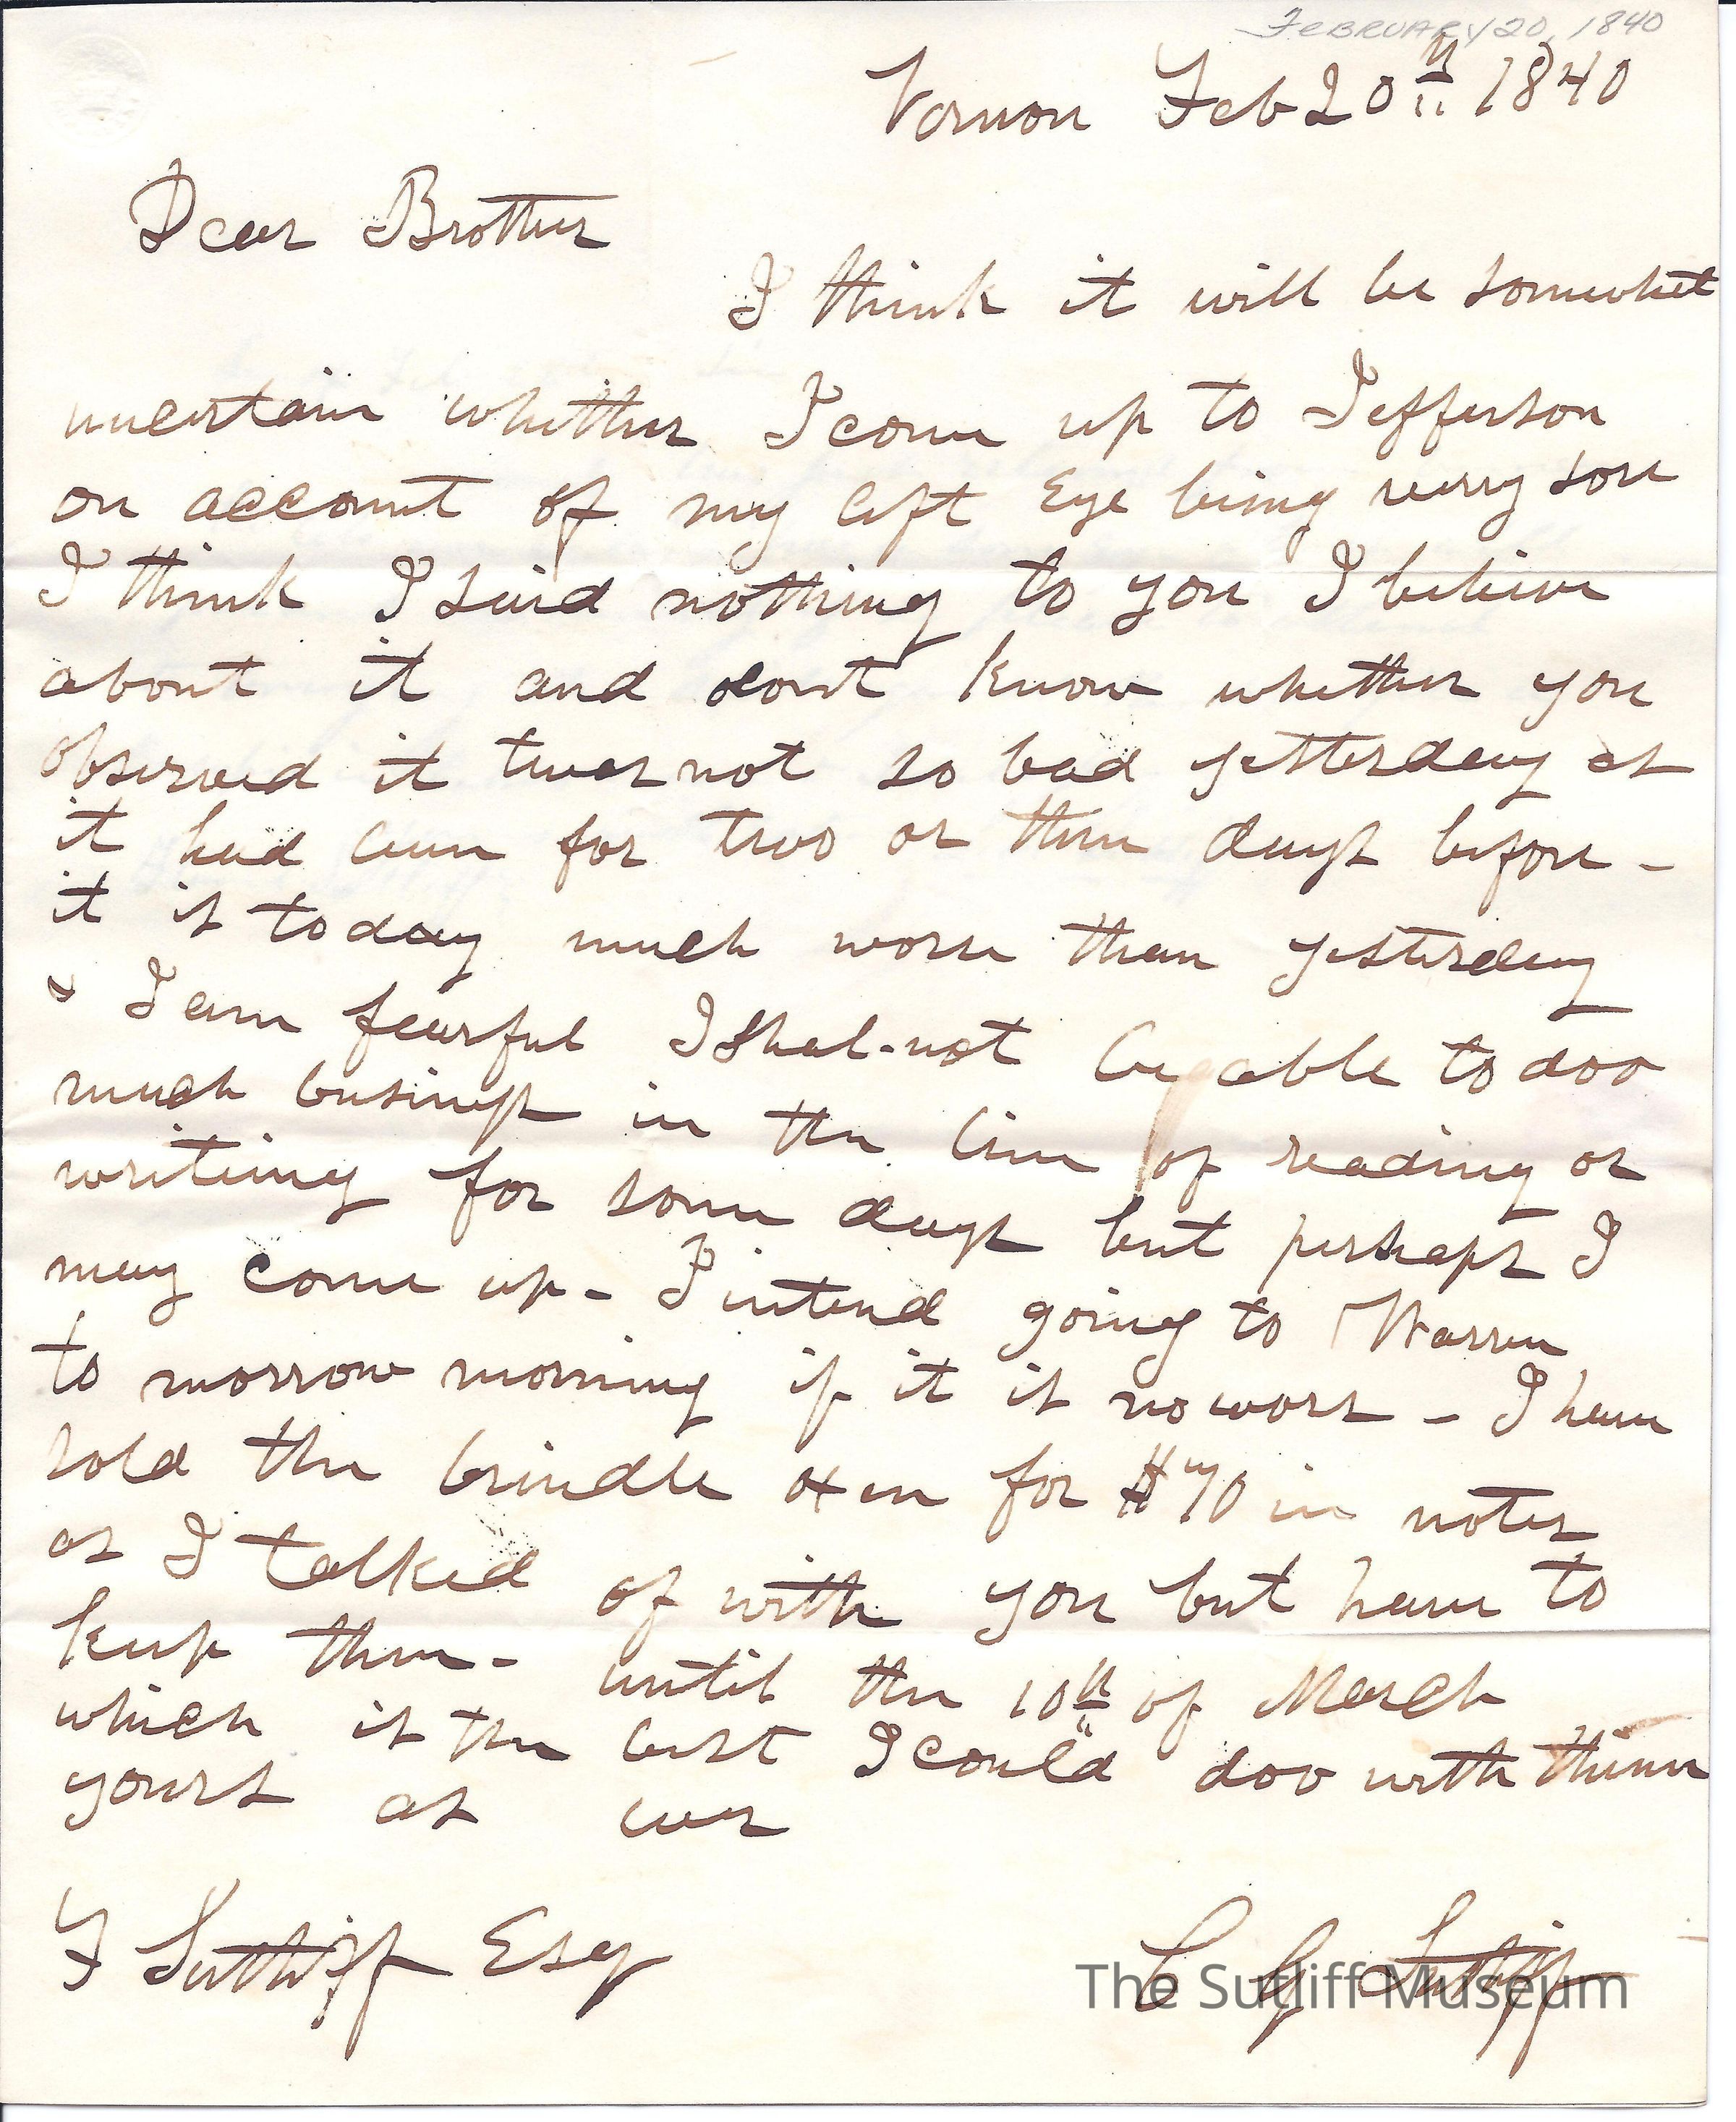 FEBRUARY 20, 1840
Vernon Feb 20th 1840
Dear Brother
I think it will be somewhat
uncertain whether I come up to Jefferson
on account of my left Eye being verry sore
I think I said nothing to you I believe
about it and dont know whether you
observed it twas not so bad yesterday as
it had been for two or three days before -
it is today much worse than yesterday
& I am fearful I shal not be able to doo
much business in the line of reading or
writing for some days but perhaps I
may come up - I intend going to Warren
to morrow morning if it is no wors - I have
sold the brindle oxen for $70 in notes
as I talked of with you but have to
keep them - until the 10th of March
which is the best I could doo with them
yours as ever
F Sutliff Esq
C G Sutliff
The Sutliff Museum